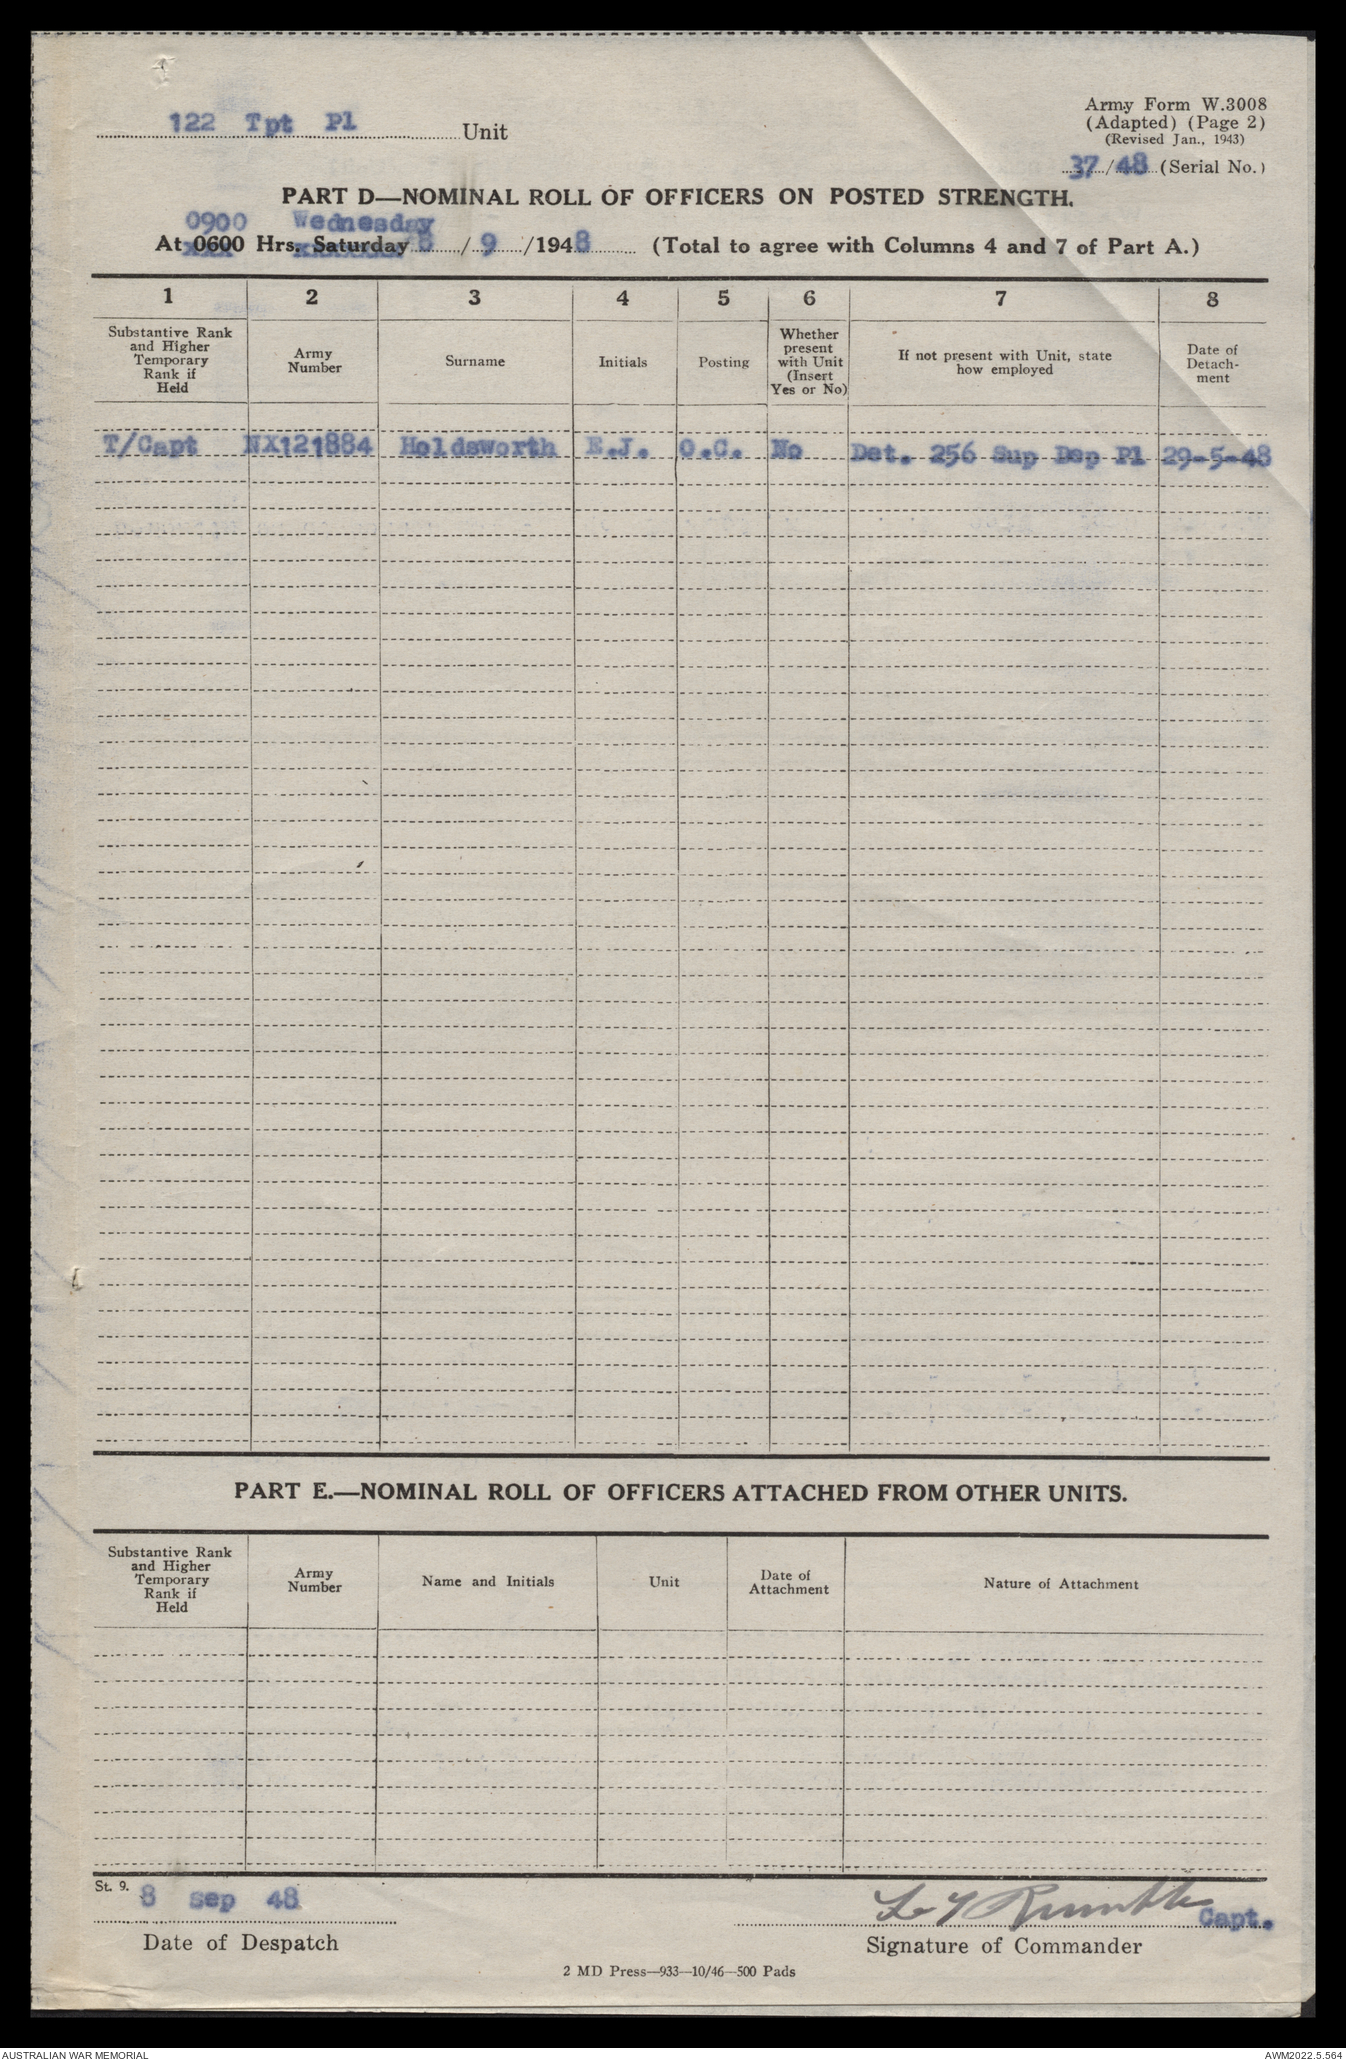 122 Tpt Pl Unit
Army Form W.3008
(Adapted) (Page 2)
(Revised Jan., 1943)
37/48 (Serial No.)
PART D—NOMINAL ROLL OF OFFICERS ON POSTED STRENGTH.
0900 Wednesday
At 0600 Hrs. Saturday 8/9/1948 (Total to agree with Columns 4 and 7 of Part A.)
xxx xxxxxxxx
1 2 3 4 5 6 7 8
Substantive Rank
and Higher
Temporary
Rank if
Held
Army
Number
Surname
Initials
Posting
Whether
present
with Unit
(Insert
Yes or No)
If not present with Unit, state
how employed
Date of
Detach-
ment
T/Capt NX121884 Holdsworth E.J. O.C. No Det. 256 Sup Dep Pl 29-5-48
PART E.—NOMINAL ROLL OF OFFICERS ATTACHED FROM OTHER UNITS.
Substantive Rank
and Higher
Temporary
Rank if
Held
Army
Number
Name and Initials
Unit
Date of
Attachment
Nature of Attachment
St. 9.
8 Sep 48
Capt.
Date of Despatch
Signature of Commander
2 MD Press—933—10/46—500 Pads
AUSTRALIAN WAR MEMORIAL
AWM2022.5.564